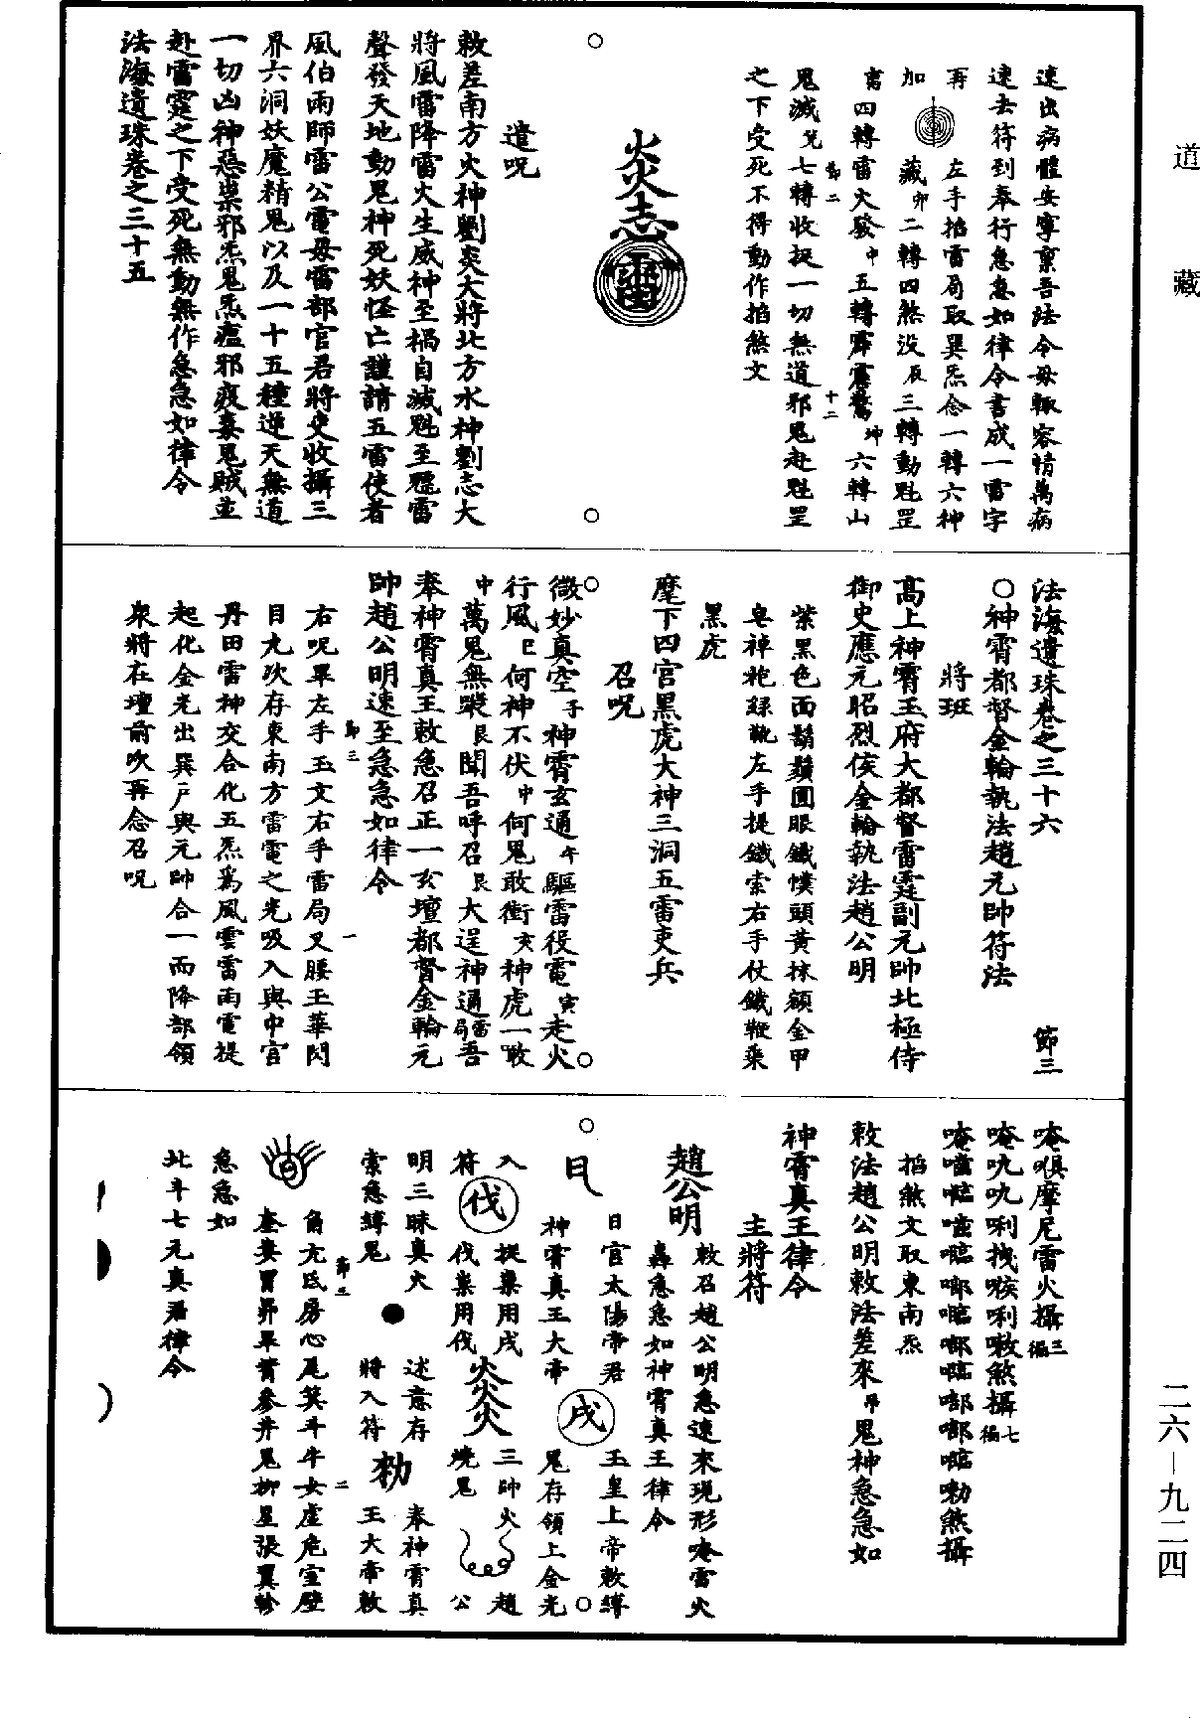 道藏
速出病體安寧稟吾法令毋輙容情萬病
速去符到奉行急急如律令書成一雷字
再 左手掐雷局取巽炁念一轉六神
加 藏卯二轉四煞没辰三轉動魁罡
寅四轉雷火發中五轉霹靂驚坤六轉山
節二 十二
鬼滅兌七轉收捉一切無道邪鬼赴魁罡
之下受死不得動作掐煞文
炎炎志
遣呪
敕差南方火神劉炎大將北方水神劉志大
將風雷降雷火生威神至禍自滅魁至聽雷
聲發天地動鬼神死妖怪亡謹請五雷使者
風伯雨師雷公電母雷部官君將吏收攝三
界六洞妖魔精鬼以及一十五種逆天無道
一切凶神惡祟邪炁鬼炁瘟邪疫毒鬼賊並
赴雷霆之下受死無動無作急急如律令
法海遺珠卷之三十五
法海遺珠卷之三十六 節三
○神霄都督金輪執法趙元帥符法
將班
高上神霄玉府大都督雷霆副元帥北極侍
御史應元昭烈侯金輪執法趙公明
紫黑色面鬍鬚圓眼鐵幞頭黃抹額金甲
皂褲袍綠靴左手提鐵索右手仗鐵鞭乘
黑虎
麾下四宮黑虎大神三洞五雷吏兵
召呪
微妙真空子神霄玄通午驅雷役電寅走火
行風巳何神不伏中何鬼敢衝亥神虎一噉
中萬鬼無蹤艮聞吾呼召艮大逞神通雷局吾
奉神霄真王敕急召正一玄壇都督金輪元
帥趙公明速至急急如律令
節三 一
右呪畢左手玉文右手雷局叉腰王華閃
目九吹存東南方雷電之光吸入與中宮
丹田雷神交合化五炁為風雲雷雨電提
起化金光出巽戶與元帥合一而降部領
衆將在壇前吹再念召呪
唵喉摩尼雷火攝三徧
唵吼吼唎拽㗋唎嗷煞攝七徧
掐煞文取東南炁
敕法趙公明敕法差來昂鬼神急急如
神霄真王律令
主將符
趙公明
敕召趙公明急速來現形唵雷火
轟急急如神霄真王律令
日宮太陽帝君 玉皇上帝敕縛
神霄真王大帝 鬼存領上金光
入 捉祟用戌 三帥火 趙
符 伐祟用伐 燒鬼 公
伐 戌 炎炎炎
明三昧真火 述意存 奉神霄真
索急縛鬼 將入符 王大帝敕
勑
節三 二
角亢氐房心尾箕斗牛女虛危室壁
奎婁胃昴畢觜參井鬼柳星張翼軫
急急如
北斗七元真君律令
二六—九二四